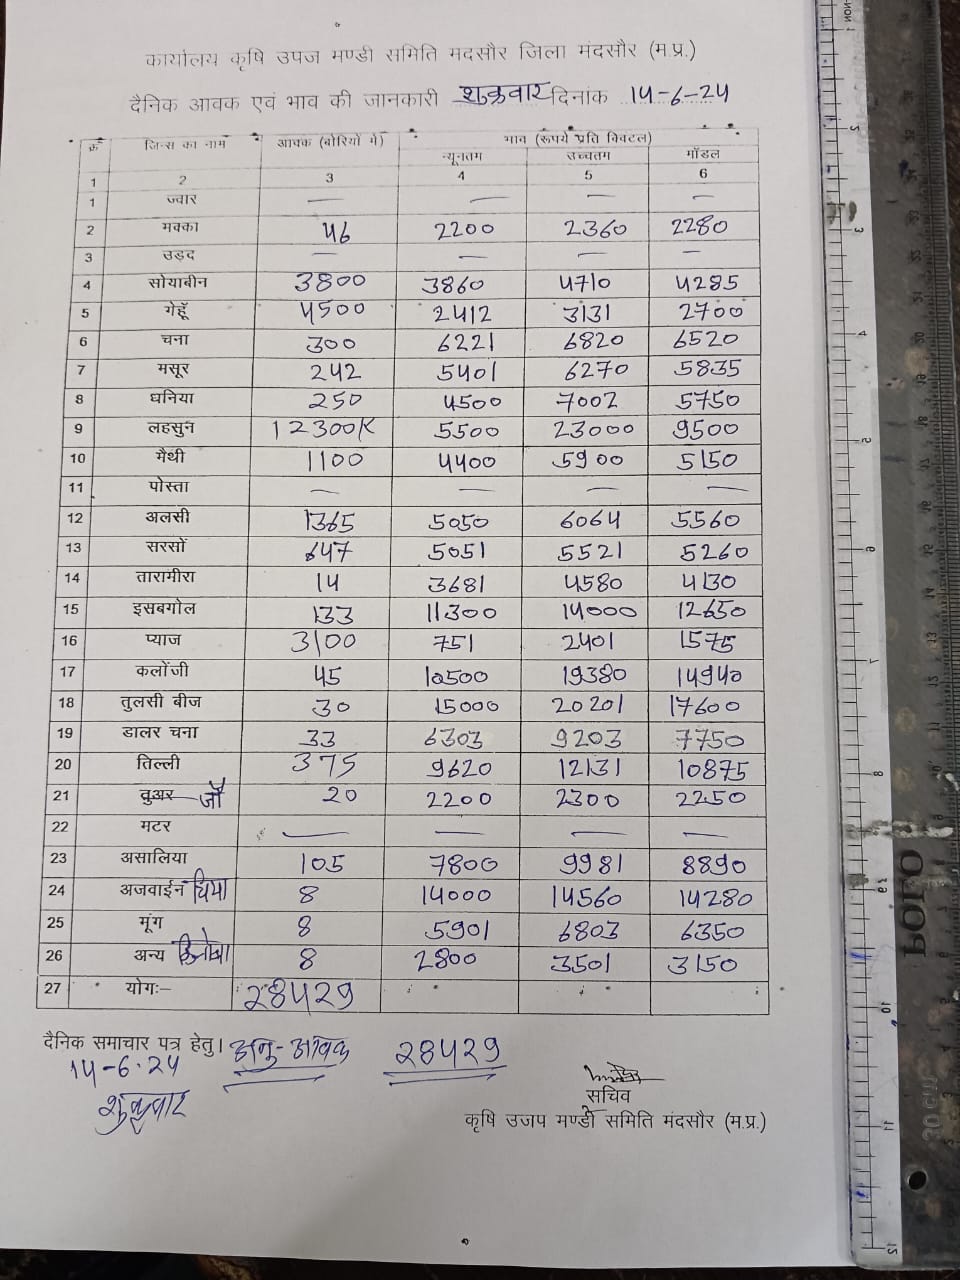 कार्यालय कृषि उपज मण्डी समिति मदसौर जिला मंदसौर (म.प्र.)
दैनिक आवक एवं भाव की जानकारी शुक्रवार दिनांक 14-6-24
क्रं जिन्स का नाम आवक (बोरियों में) भाव (रूपये प्रति क्विटल)
न्यूनतम उच्चतम मॉडल
1 2 3 4 5 6
1 ज्वार — — — —
2 मक्का 46 2200 2360 2280
3 उड़द — — — —
4 सोयाबीन 3800 3860 4710 4285
5 गेहूँ 4500 2412 3131 2700
6 चना 300 6221 6820 6520
7 मसूर 242 5401 6270 5835
8 धनिया 250 4500 7002 5750
9 लहसुन 12300K 5500 23000 9500
10 मैथी 1100 4400 5900 5150
11 पोस्ता — — — —
12 अलसी 1365 5050 6064 5560
13 सरसों 647 5051 5521 5260
14 तारामीरा 14 3681 4580 4130
15 इसबगोल 133 11300 14000 12650
16 प्याज 3100 751 2401 1575
17 कलोंजी 45 10500 19380 14940
18 तुलसी बीज 30 15000 20201 17600
19 डालर चना 33 6303 9203 7750
20 तिल्ली 375 9620 12131 10875
21 तुअर जौ 20 2200 2300 2250
22 मटर — — — —
23 असालिया 105 7800 9981 8890
24 अजवाईन चिया 8 14000 14560 14280
25 मूंग 8 5901 6803 6350
26 अन्य 8 2800 3501 3150
27 योगः– 28429
दैनिक समाचार पत्र हेतु। अनु-आवक 28429
14-6-24
शुक्रवार
सचिव
कृषि उजप मण्डी समिति मंदसौर (म.प्र.)
РОГО
30 cm